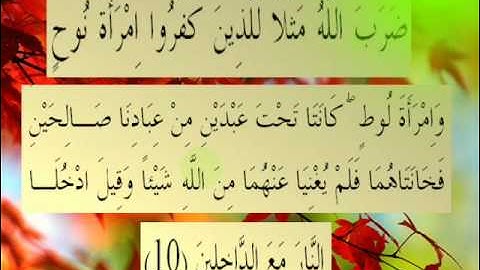 ضَرَبَ اللهُ مَثَلا لِلَّذِينَ كَفَرُوا اِمْرَأَةَ نُوحٍ
وَاِمْرَأَةَ لُوطٍ ۖ كَانَتَا تَحْتَ عَبْدَيْنِ مِنْ عِبَادِنَا صَـــالِحَيْنِ
فَخَانَتَاهُمَا فَلَمْ يُغْنِيَا عَنْهُمَا مِنَ اللَّهِ شَيْئاً وَقِيلَ ادْخُلَـــا
النَّارَ مَعَ الدَّاخِلِينَ (10)